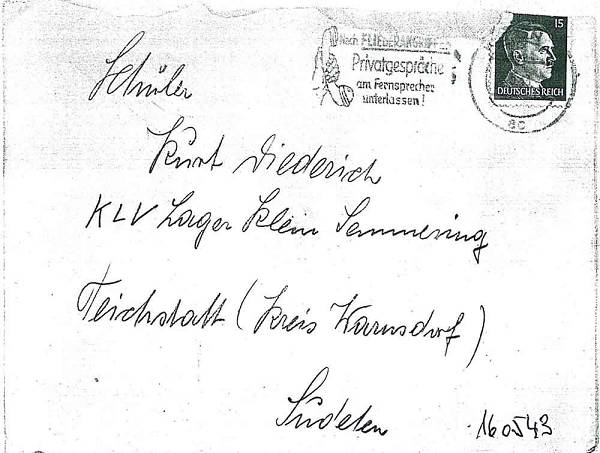 Nach FLIEGERANGRIFF
Privatgespräche
am Fernsprecher
unterlassen!
15
DEUTSCHES REICH
ac
Schüler
Kurt Diederich
KLV Lager Klein Semmering
Teichstatt (Kreis Warnsdorf)
Sudeten
160543